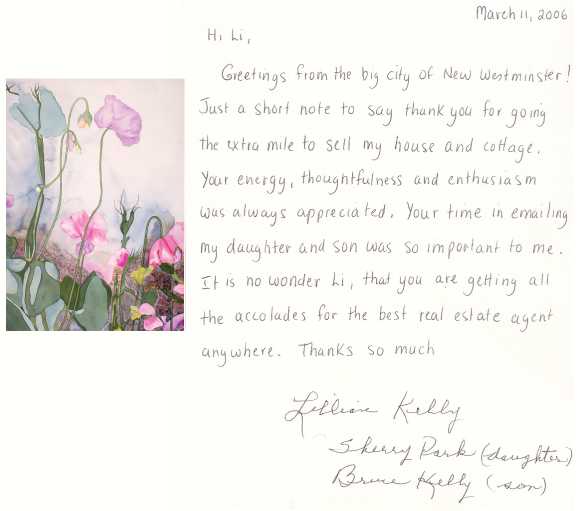 March 11, 2006
Hi Li,
Greetings from the big city of New Westminster!
Just a short note to say thank you for going
the extra mile to sell my house and cottage.
Your energy, thoughtfulness and enthusiasm
was always appreciated. Your time in emailing
my daughter and son was so important to me.
It is no wonder Li, that you are getting all
the accolades for the best real estate agent
anywhere. Thanks so much
Lillian Kelly
Sherry Park (daughter)
Bruce Kelly (son)